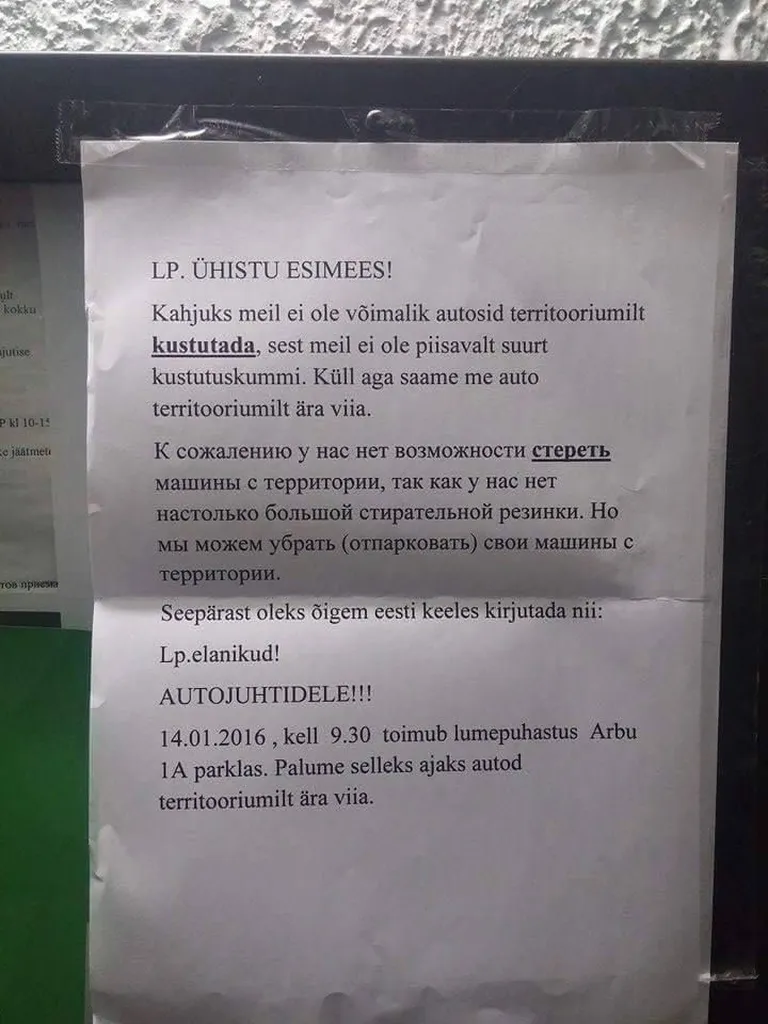 LP. ÜHISTU ESIMEES!
Kahjuks meil ei ole võimalik autosid territooriumilt
kustutada, sest meil ei ole piisavalt suurt
kustutuskummi. Küll aga saame me auto
territooriumilt ära viia.
К сожалению у нас нет возможности стереть
машины с территории, так как у нас нет
настолько большой стирательной резинки. Но
мы можем убрать (отпарковать) свои машины с
территории.
Seepärast oleks õigem eesti keeles kirjutada nii:
Lp.elanikud!
AUTOJUHTIDELE!!!
14.01.2016 , kell 9.30 toimub lumepuhastus Arbu
1A parklas. Palume selleks ajaks autod
territooriumilt ära viia.
kokku
P kl 10-15